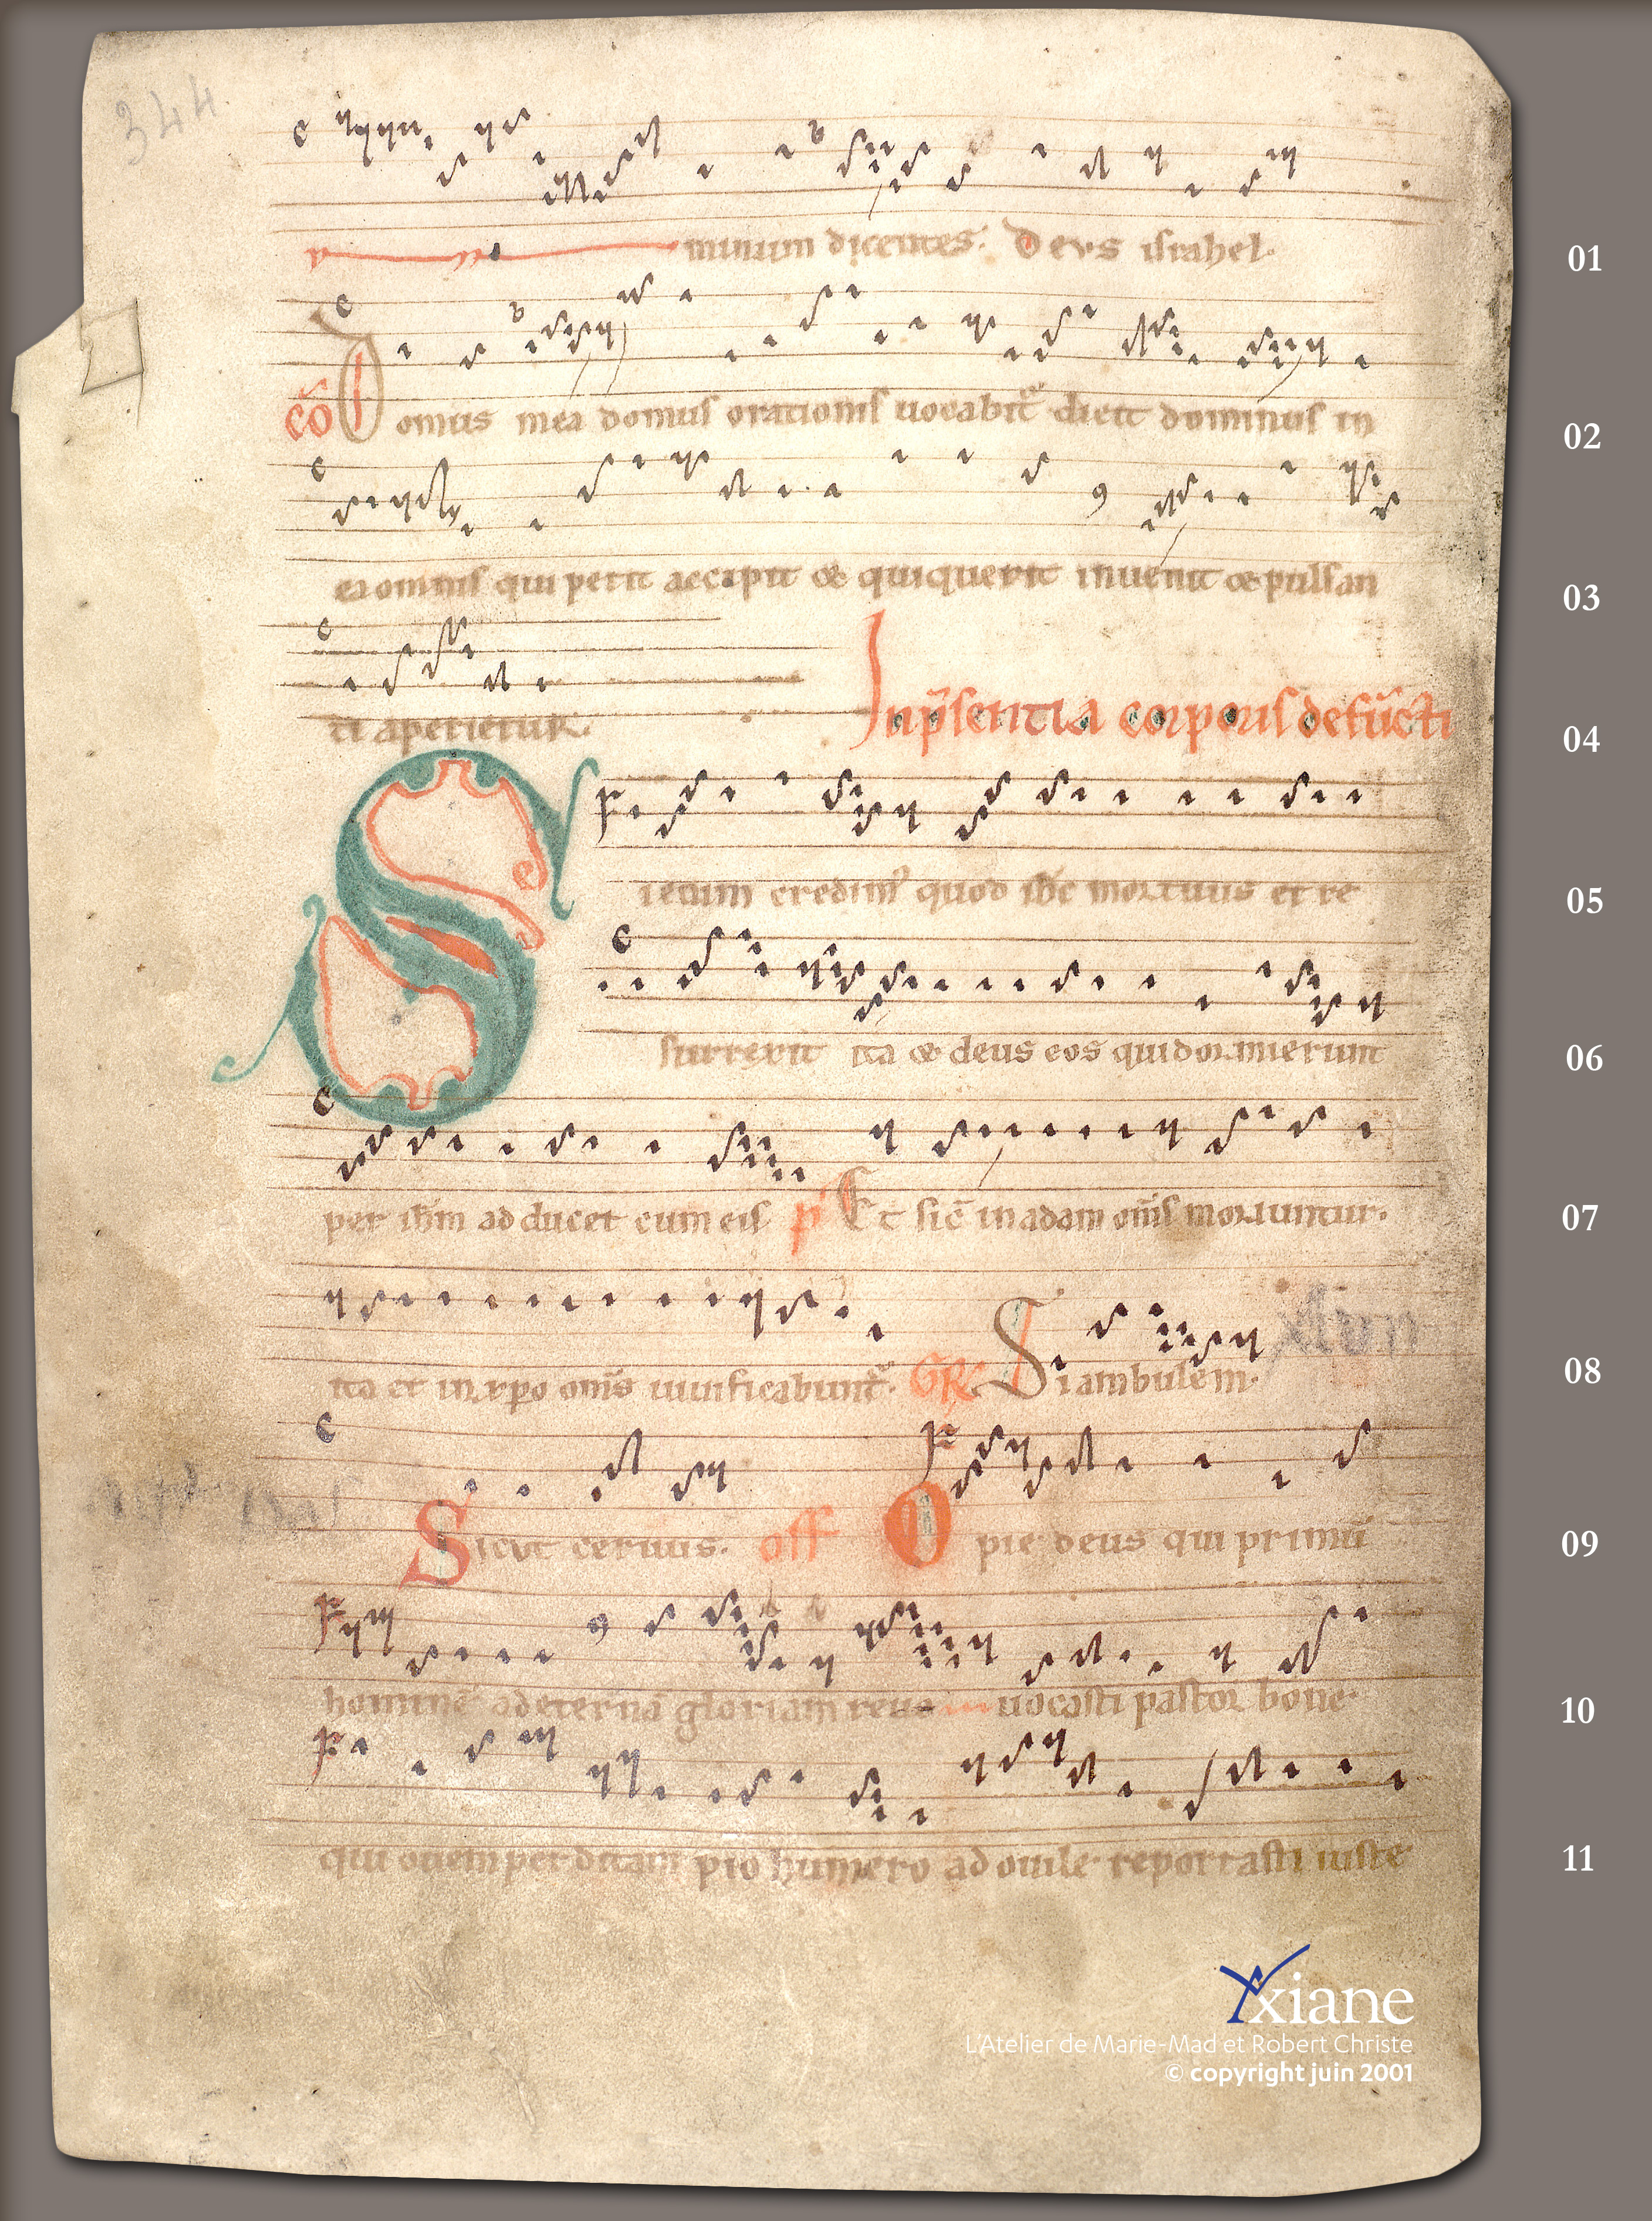 344.
minum dicentes. Deus israhel.
01
cō Domus mea domus orationis uocabit᷑ dicit dominus in
02
ea omnis qui petit accipit & qui querit inuenit & pulsan
03
ti aperietur.
In p̄sentia corporis defūcti
04
Sicuum credimꝰ quod ih̄c mortuus et re
05
surrexit ita & deus eos qui dormierunt
06
per ih̄m adducet cum eis p̄ Et sic̄ in adam om̄s moriuntur.
07
ita et in xp̄o om̄s uiuificabunt᷑. GR Si ambulem.
08
Sicut ceruus. off O pie deus qui primū
09
hominē ad eternā gloriam reuo uocasti pastor bone
10
qui ouem perditam pio humero ad ouile reportasti iuste
11
Yxiane
L'Atelier de Marie-Mad et Robert Christe
© copyright juin 2001